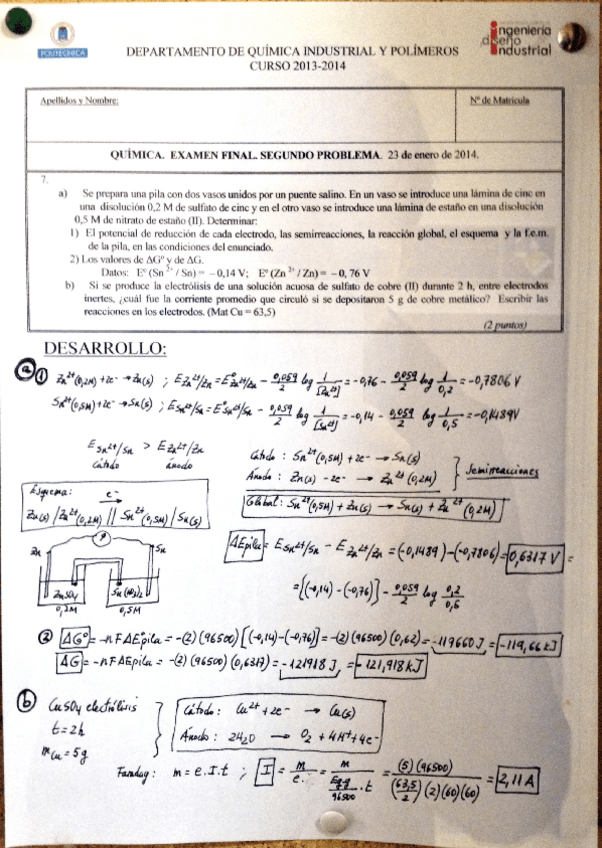 POLITECNICA
ingeniería
diseño
industrial
DEPARTAMENTO DE QUÍMICA INDUSTRIAL Y POLÍMEROS
CURSO 2013-2014
Apellidos y Nombre:
Nº de Matrícula
QUÍMICA. EXAMEN FINAL. SEGUNDO PROBLEMA. 23 de enero de 2014.
7.
a) Se prepara una pila con dos vasos unidos por un puente salino. En un vaso se introduce una lámina de cinc en
una disolución 0,2 M de sulfato de cinc y en el otro vaso se introduce una lámina de estaño en una disolución
0,5 M de nitrato de estaño (II). Determinar:
1) El potencial de reducción de cada electrodo, las semirreacciones, la reacción global, el esquema y la f.e.m.
de la pila, en las condiciones del enunciado.
2) Los valores de ΔGº y de ΔG.
Datos: Eº (Sn 2+ / Sn) = – 0,14 V; Eº (Zn 2+ / Zn) = – 0, 76 V
b) Si se produce la electrólisis de una solución acuosa de sulfato de cobre (II) durante 2 h, entre electrodos
inertes, ¿cuál fue la corriente promedio que circuló si se depositaron 5 g de cobre metálico? Escribir las
reacciones en los electrodos. (Mat Cu = 63,5)
(2 puntos)
DESARROLLO:
a) 1) Zn²⁺(0,2M) + 2e⁻ → Zn(s) ; E Zn²⁺/Zn = Eº Zn²⁺/Zn - 0,059/2 log 1/[Zn²⁺] = -0,76 - 0,059/2 log 1/0,2 = -0,7806 V
Sn²⁺(0,5M) + 2e⁻ → Sn(s) ; E Sn²⁺/Sn = Eº Sn²⁺/Sn - 0,059/2 log 1/[Sn²⁺] = -0,14 - 0,059/2 log 1/0,5 = -0,1489V
E Sn²⁺/Sn > E Zn²⁺/Zn
Cátodo ánodo
Cátodo : Sn²⁺(0,5M) + 2e⁻ → Sn(s)
Ánodo : Zn(s) - 2e⁻ → Zn²⁺(0,2M)
Semirreacciones
Global : Sn²⁺(0,5M) + Zn(s) → Sn(s) + Zn²⁺(0,2M)
Esquema: e⁻
Zn(s) / Zn²⁺(0,2M) // Sn²⁺(0,5M) / Sn(s)
Zn Sn
ZnSO₄ Sn(NO₃)₂
0,2M 0,5M
ΔEpila = E Sn²⁺/Sn - E Zn²⁺/Zn = (-0,1489) - (-0,7806) = 0,6317 V =
= [(-0,14) - (-0,76)] - 0,059/2 log 0,2/0,5
2) ΔGº = -nFΔEpila = -(2)(96500)[(-0,14) - (-0,76)] = -(2)(96500)(0,62) = -119660 J = -119,66 kJ
ΔG = -nFΔEpila = -(2)(96500)(0,6317) = -121918 J = -121,918 kJ
b) CuSO₄ electrólisis
t = 2h
m Cu = 5g
Cátodo : Cu²⁺ + 2e⁻ → Cu(s)
Ánodo : 2H₂O → O₂ + 4H⁺ + 4e⁻
Faraday : m = e.I.t ; I = m/e. = m/(Eq-g/96500 .t) = (5)(96500)/((63,5/2)(2)(60)(60)) = 2,11 A